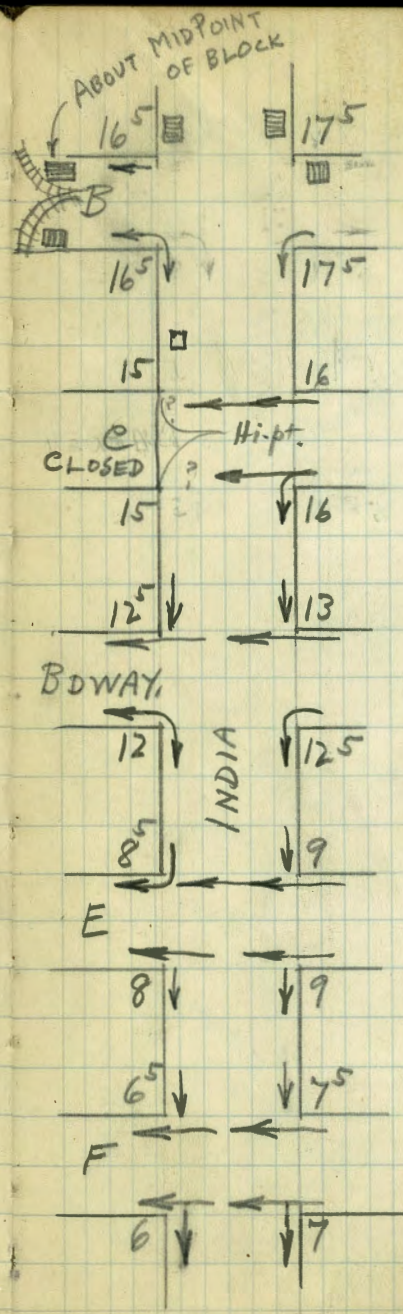 ABOUT MIDPOINT
OF BLOCK
16⁵ 17⁵
B
16⁵ 17⁵
15 16
? Hi-pt.
C
CLOSED
?
15 16
12⁵ 13
BDWAY.
12 12⁵
INDIA
8⁵ 9
E
8 9
6⁵ 7⁵
F
6 7